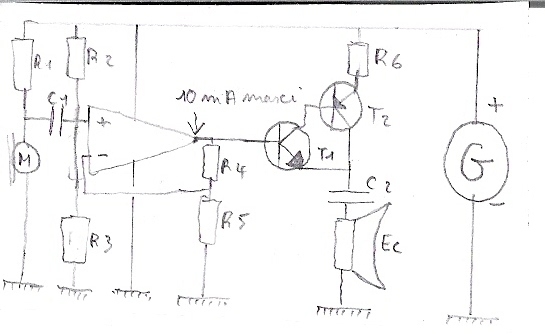 R1
R2
R6
10 mA maxi
C1
+
T2
+
-
M
T1
G
R4
C2
-
R3
R5
Ec